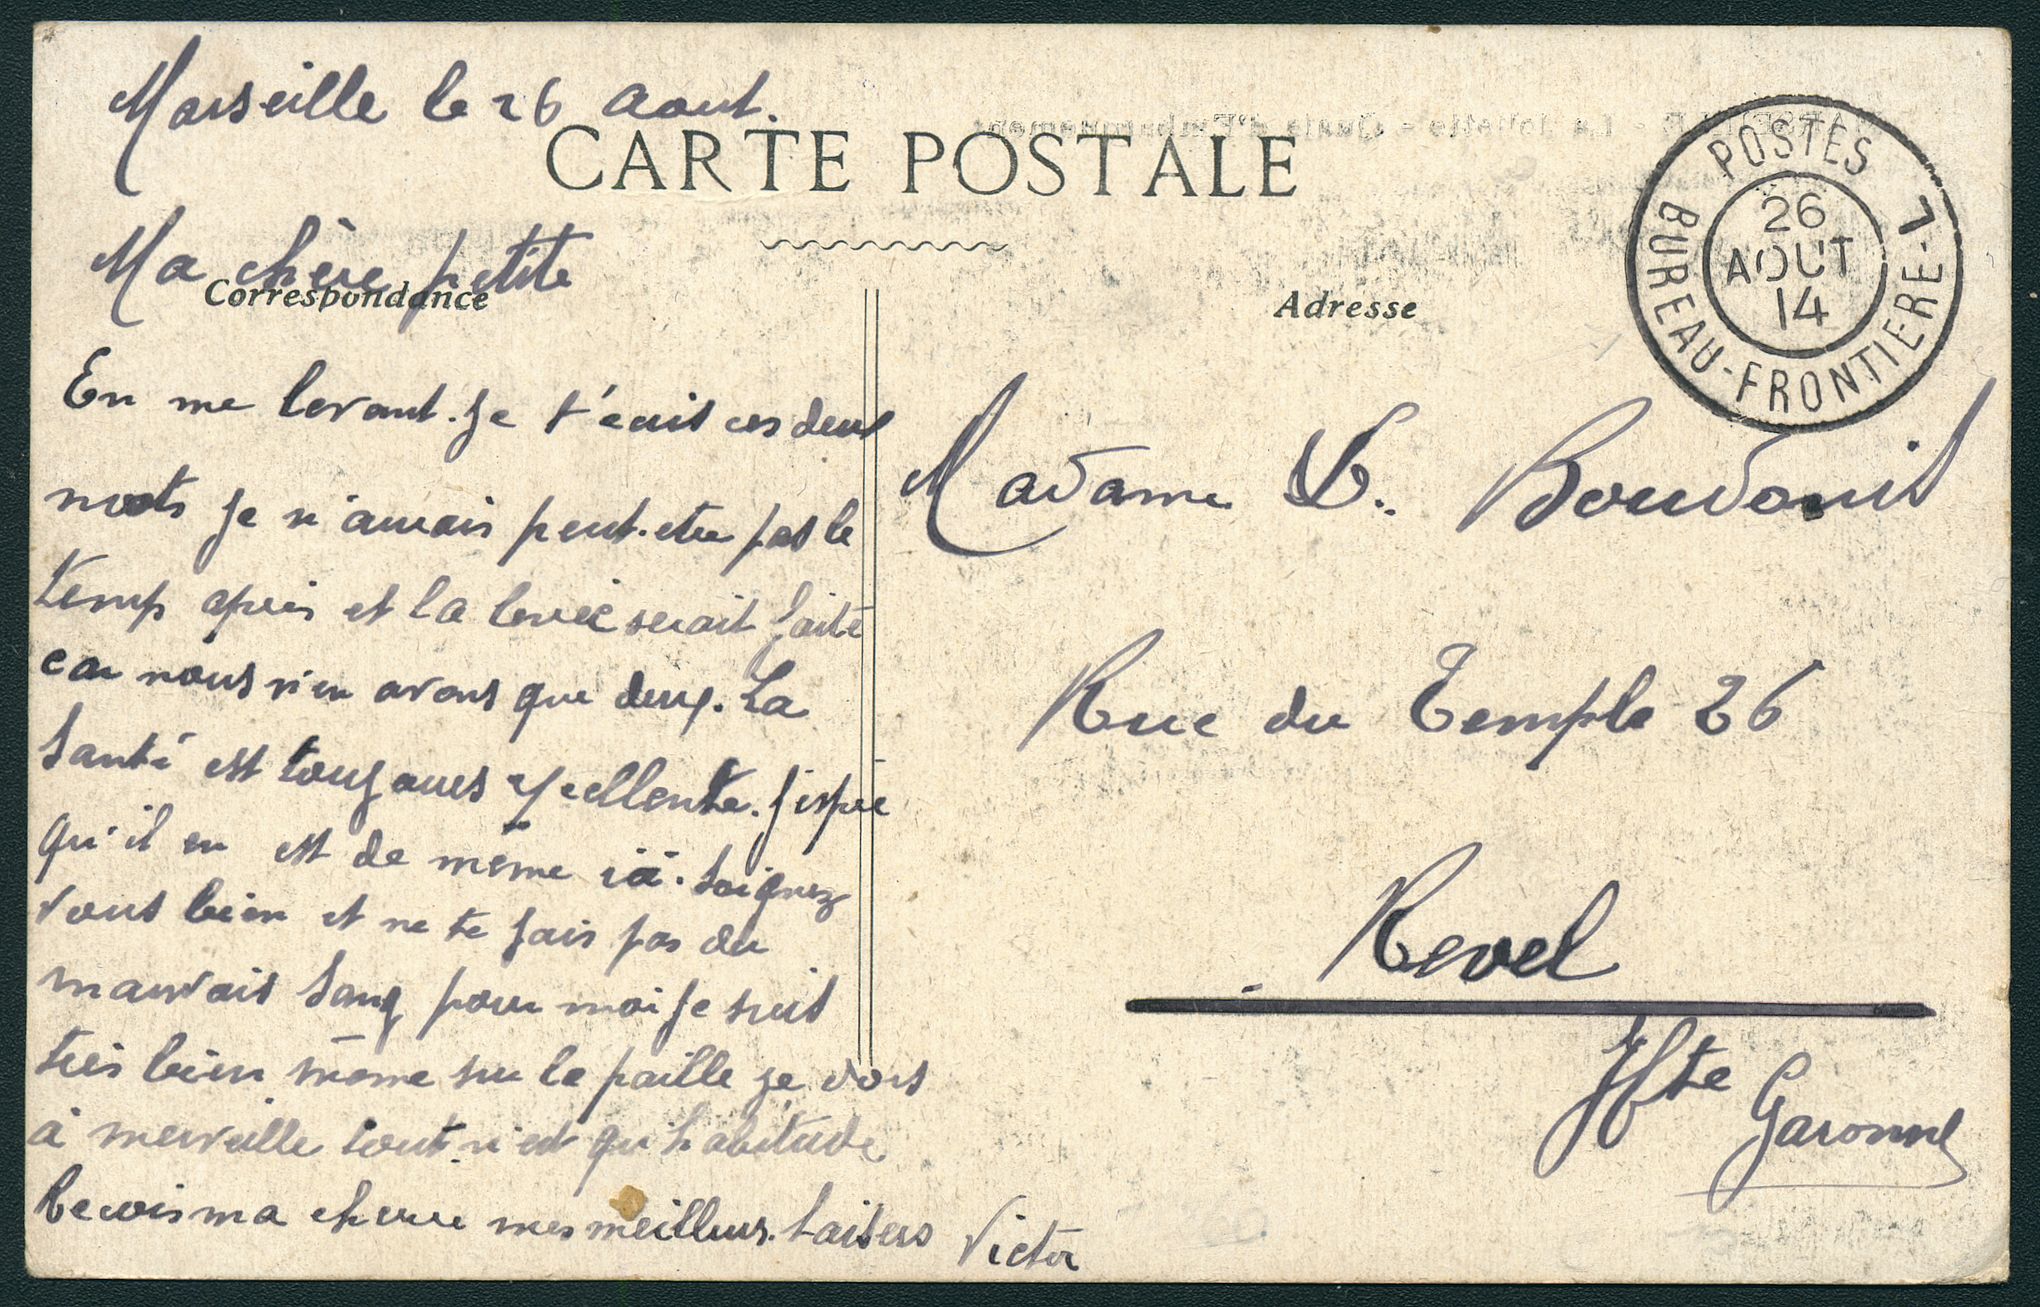 Marseille le 26 Aout.
CARTE POSTALE
Ma chère petite
Correspondance
En me levant. je t'ecris ces deux
mots je n'aurais peut-etre pas le
temps après et la levée serait faite
car nous n'en avons que deux. La
Santé est toujours excellente. J'espère
qu'il en est de même ici. Soignez
vous bien et ne te fais pas du
mauvais Sang pour moi je suis
très bien même sur la paille je dors
à merveille tout n'est qu'habitude
Recois ma cherie mes meilleurs baisers Victor
Adresse
POSTES
BUREAU-FRONTIERE-L
26
AOUT
14
Madame
Rue du Temple 26
Revel
Hte
Garonne
MARSEILLE - La Joliette - Quais d'Embarquement